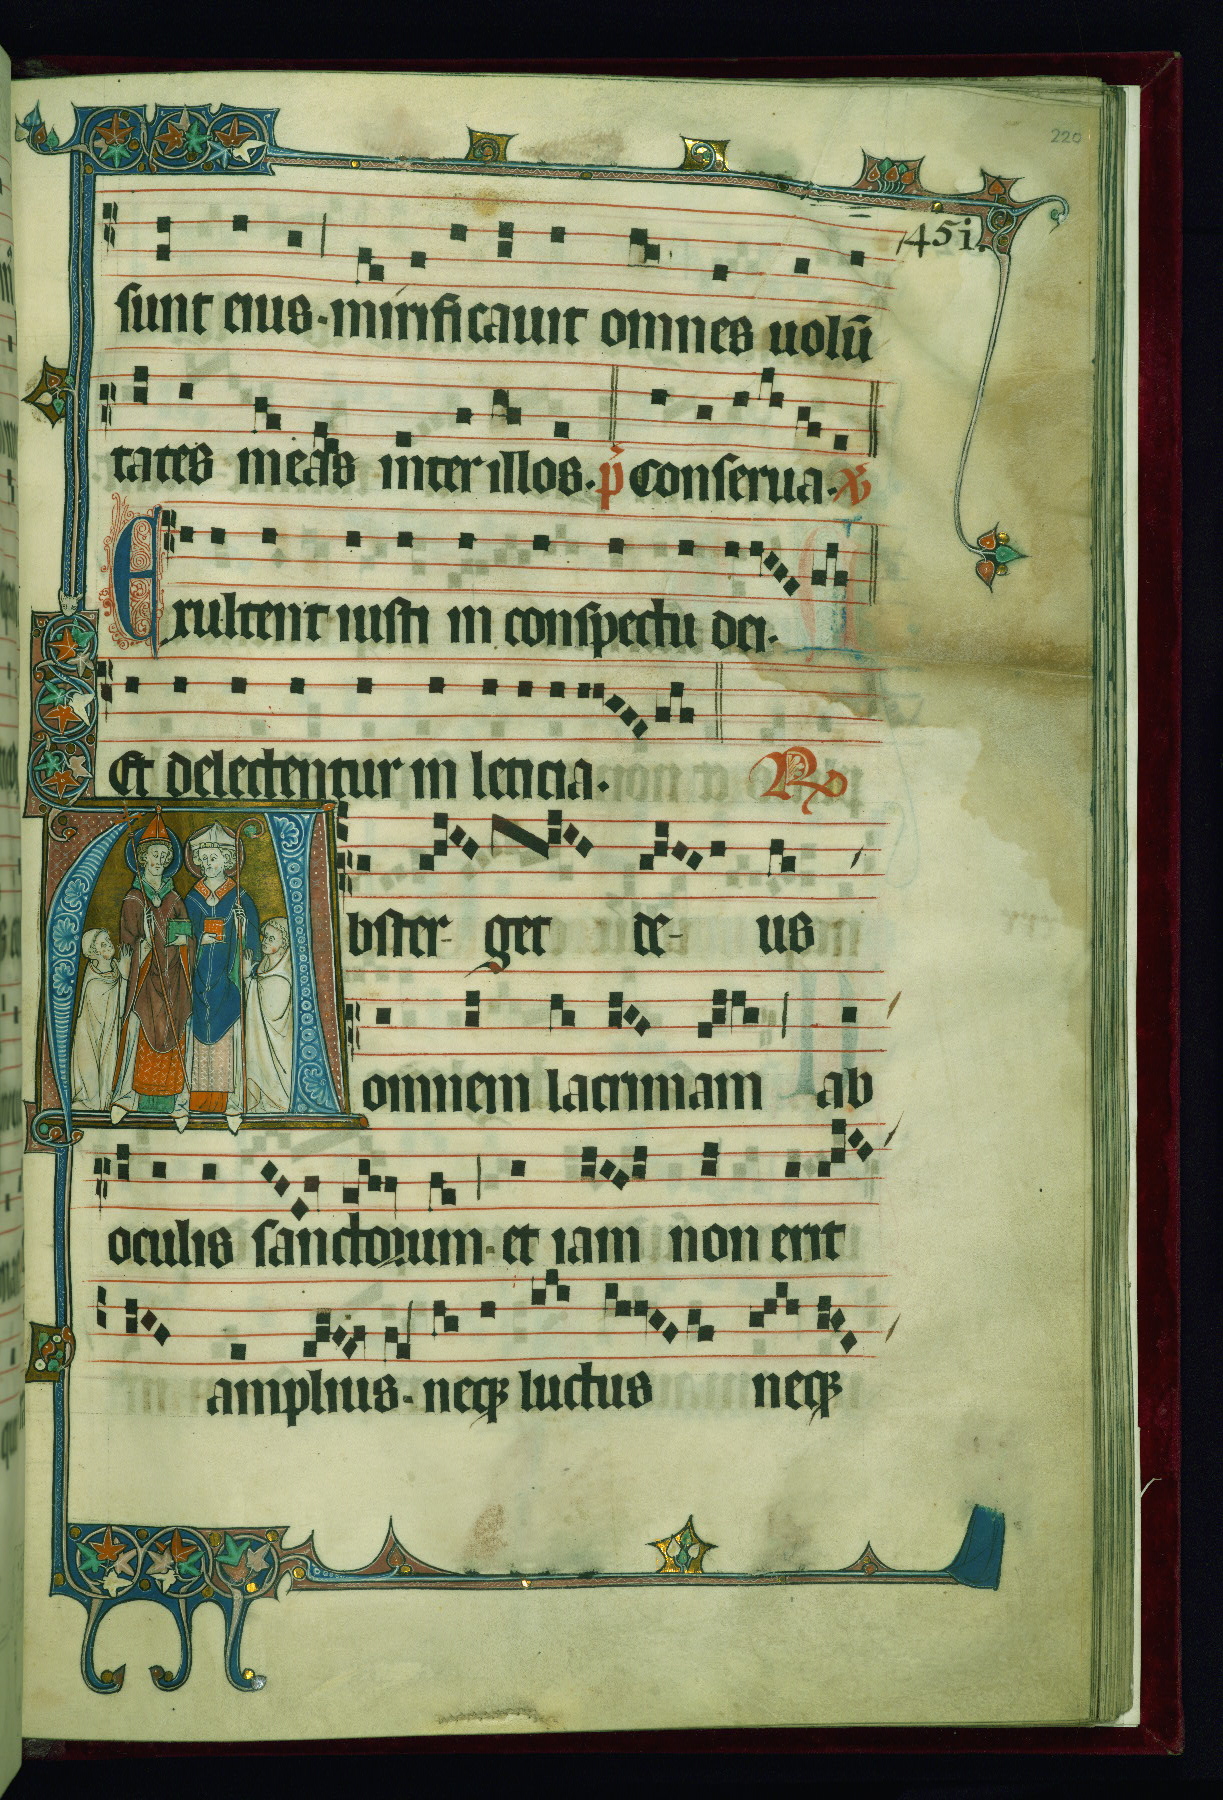 220
451.
sunt eius· mirificauit omnes uolū
tates meas inter illos· p̄ Conserua· ℣
Exultent iusti in conspectu dei·
Et delectentur in leticia· ℟
Abster- get de- us
omnem lacrimam ab
oculis sanctorum· et iam non erit
amplius· neqꝫ luctus neqꝫ